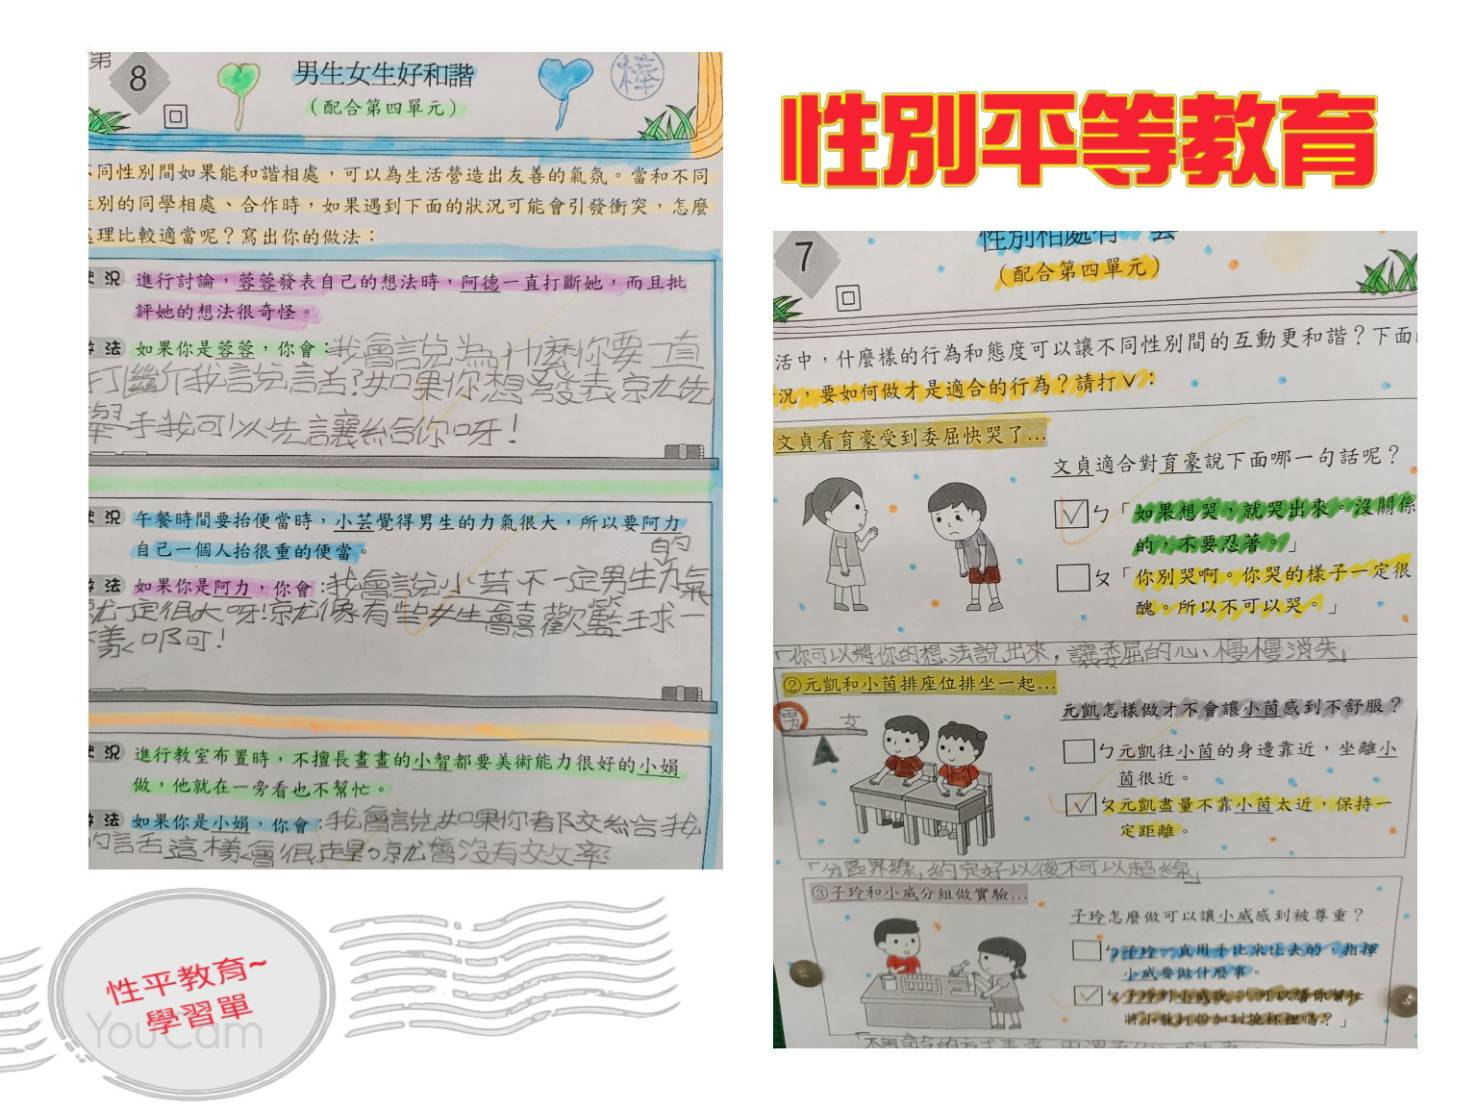 第
8
男生女生好和諧
(配合第四單元)
同性別間如果能和諧相處，可以為生活營造出友善的氣氛。當和不同
別的同學相處、合作時，如果遇到下面的狀況可能會引發衝突，怎麼
理比較適當呢？寫出你的做法：
況 進行討論，蓉蓉發表自己的想法時，阿德一直打斷她，而且批
評她的想法很奇怪。
法 如果你是蓉蓉，你會：我會說為什麼你要一直
打斷我說話？如果你想發表就先
舉手我可以先讓給你呀！
況 午餐時間要抬便當時，小芸覺得男生的力氣很大，所以要阿力
自己一個人抬很重的便當。
法 如果你是阿力，你會：我會說小芸不一定男生的力氣
就一定很大呀！就像有些女生會喜歡籃球一
樣啊！
況 進行教室布置時，不擅長畫畫的小智都要美術能力很好的小娟
做，他就在一旁看也不幫忙。
法 如果你是小娟，你會：我會說如果你都交給我
的話這樣會很趕。就會沒有效率
性別平等教育
7
性別相處有一套
(配合第四單元)
活中，什麼樣的行為和態度可以讓不同性別間的互動更和諧？下面
況，要如何做才是適合的行為？請打ˇ：
文貞看育豪受到委屈快哭了…
文貞適合對育豪說下面哪一句話呢？
☑ㄅ「如果想哭，就哭出來。沒關係
的，不要忍著。」
□ㄆ「你別哭啊。你哭的樣子一定很
醜。所以不可以哭。」
「你可以將你的想法說出來，讓委屈的心慢慢消失」
②元凱和小茵排座位排坐一起…
男 女
元凱怎樣做才不會讓小茵感到不舒服？
□ㄅ元凱往小茵的身邊靠近，坐離小
茵很近。
☑ㄆ元凱盡量不靠小茵太近，保持一
定距離。
「分區界線，約定好以後不可以超線」
③子玲和小威分組做實驗…
子玲怎麼做可以讓小威感到被尊重？
□ㄅ子玲一直用手比來比去的，指揮
小威要做什麼事。
☑ㄆ子玲對小威說：「可以請你幫忙
將小蘇打粉加到燒杯裡嗎？」
性平教育~
學習單
YouCam